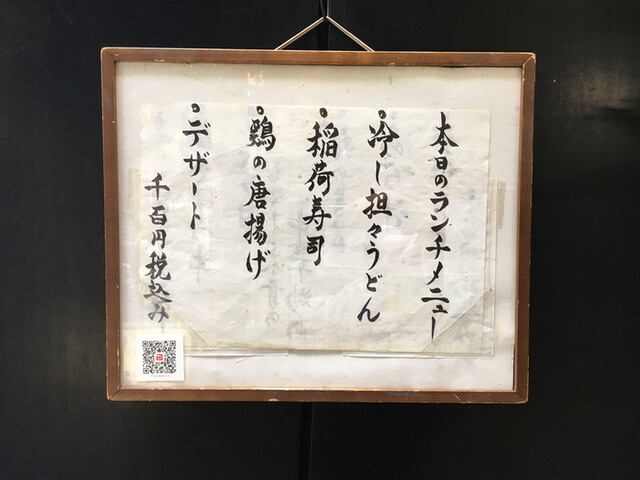 本日のランチメニュー
。冷し担々うどん
。稲荷寿司
。鶏の唐揚げ
。デザート
千百円税込み